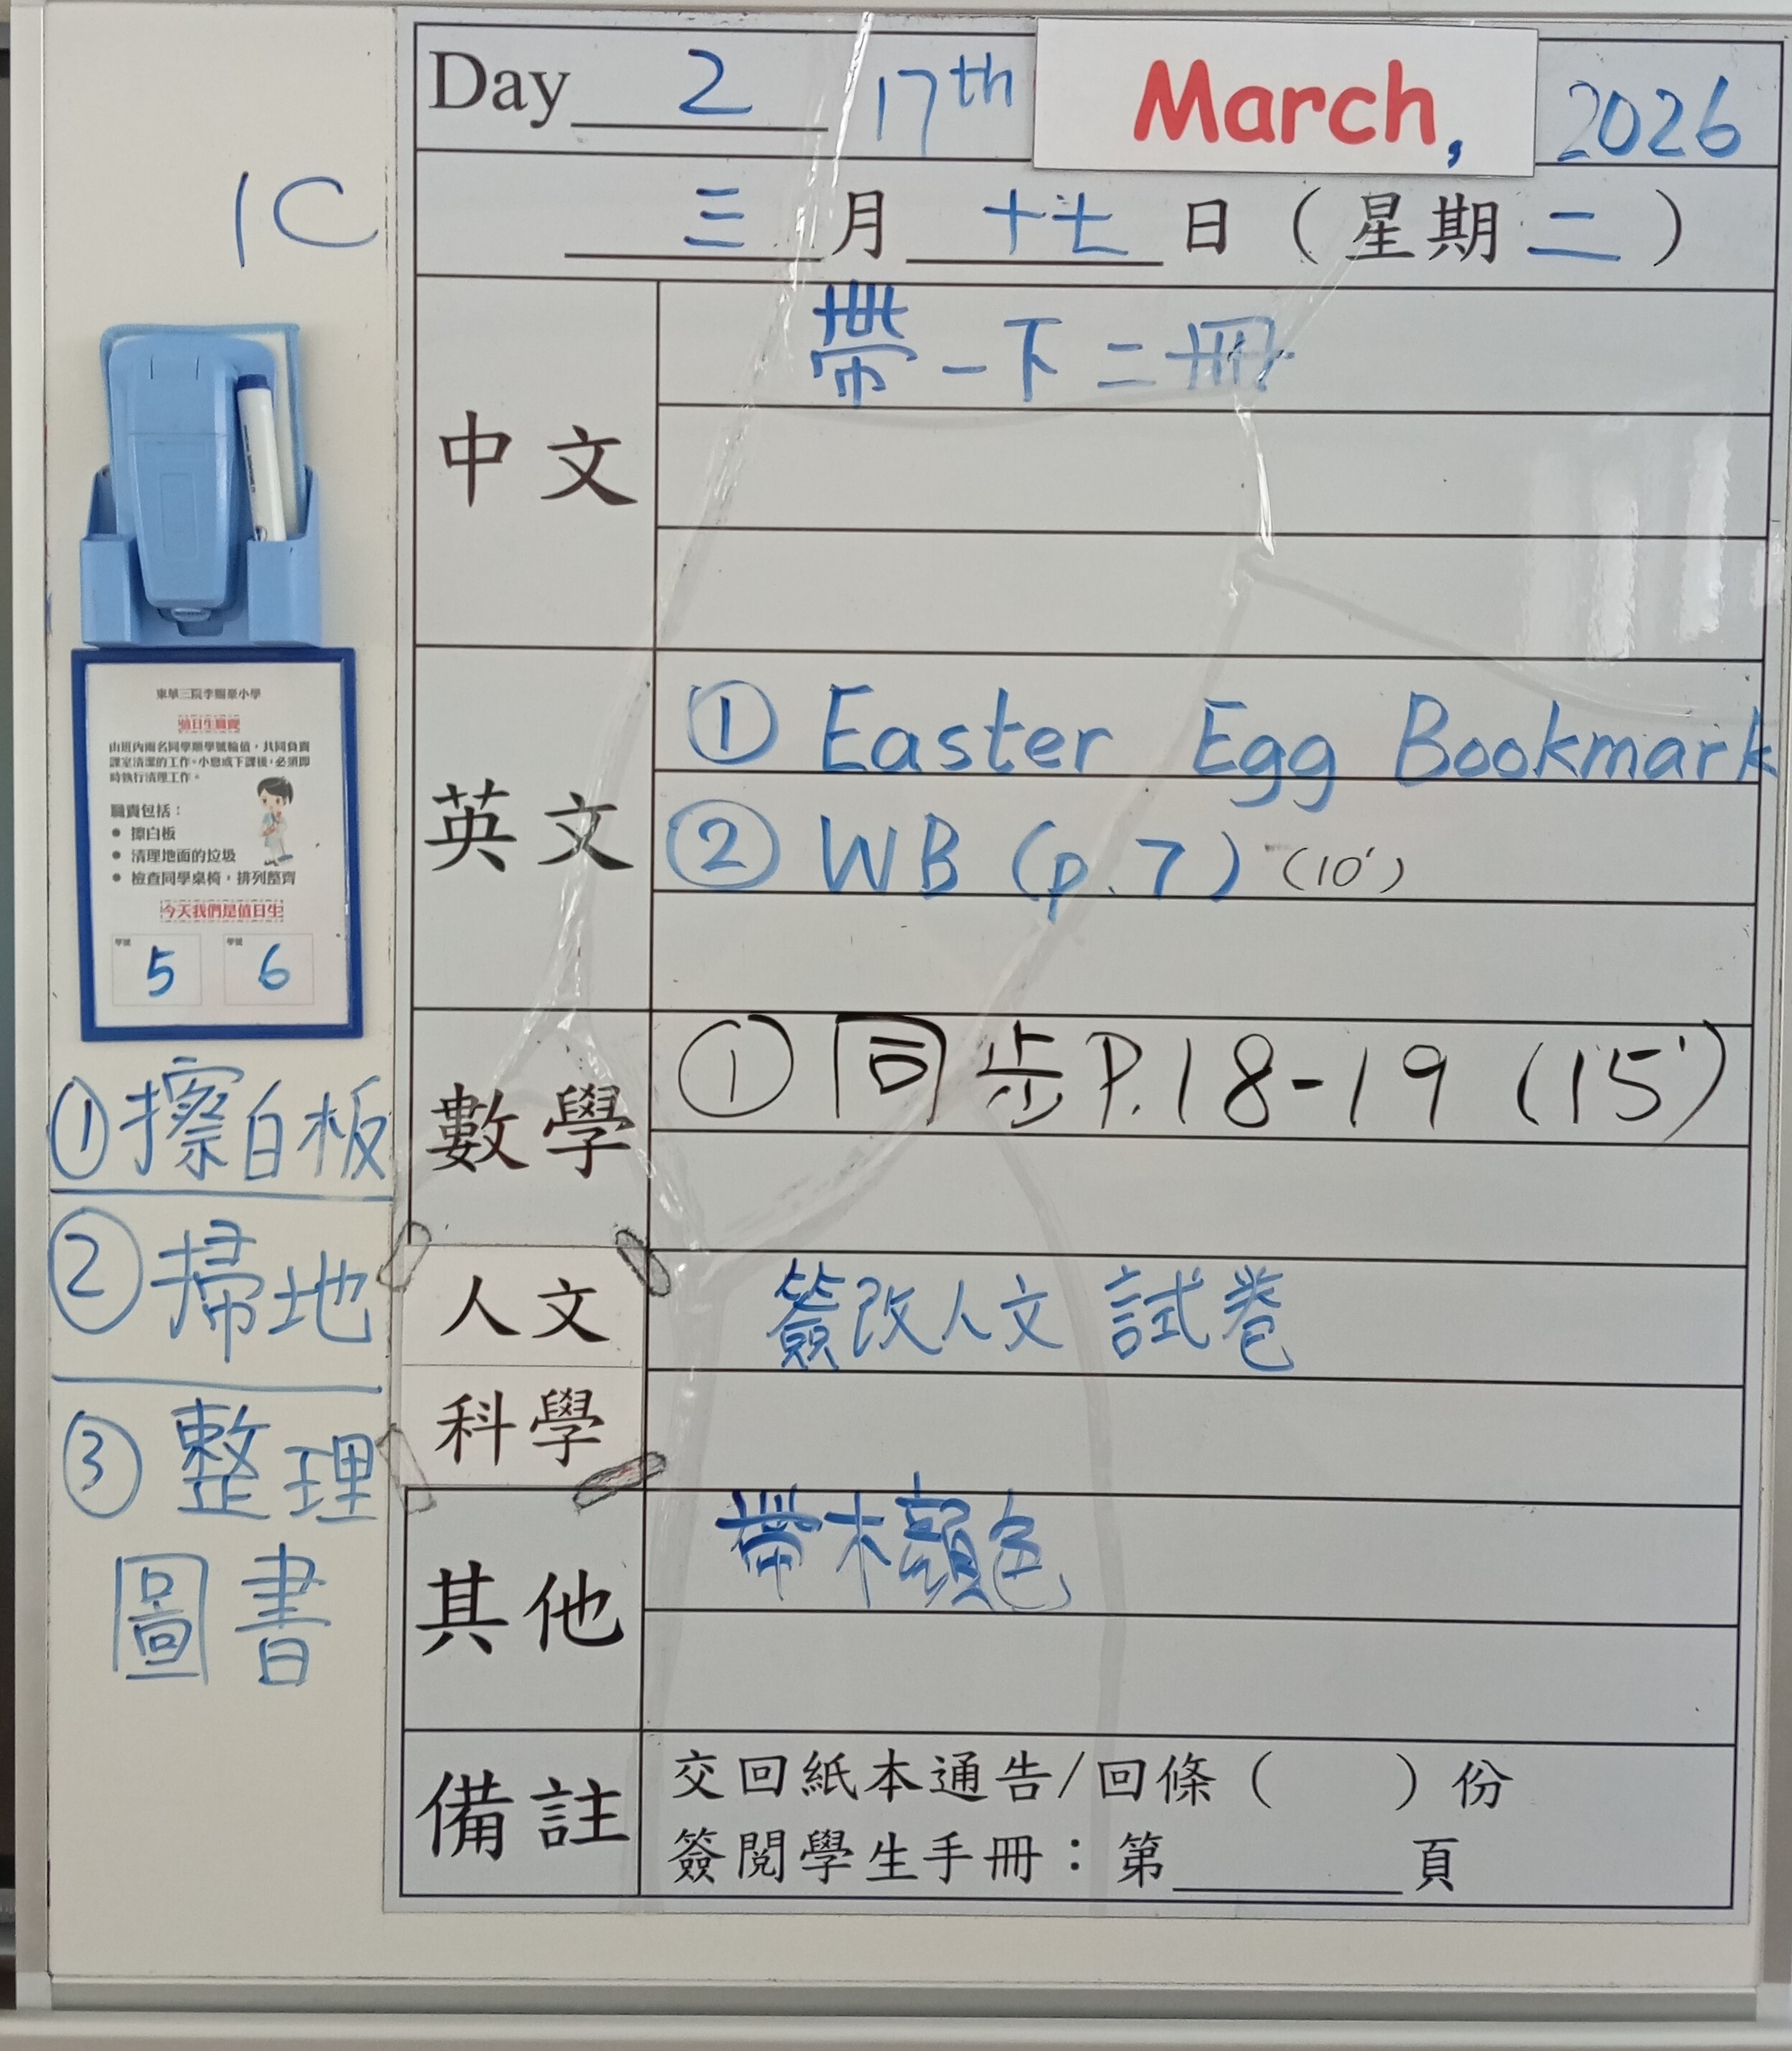 Day 2 17th March, 2026
1C
三月十七日（星期二）
中文
帶一下二冊
英文
① Easter Egg Bookmark
② WB (p.7) (10')
數學
① 同步P.18-19 (15')
人文
簽改人文試卷
科學
其他
帶木顏色
備註
交回紙本通告/回條（　　）份
簽閱學生手冊：第______頁
值日生職責
由班內兩名同學順學號輪值，共同負責
課室清潔的工作。小息或下課後，必須即
時執行清理工作。
職責包括：
● 擦白板
● 清理地面的垃圾
● 檢查同學桌椅，排列整齊
今天我們是值日生
學號 學號
5 6
①擦白板
②掃地
③整理
圖書